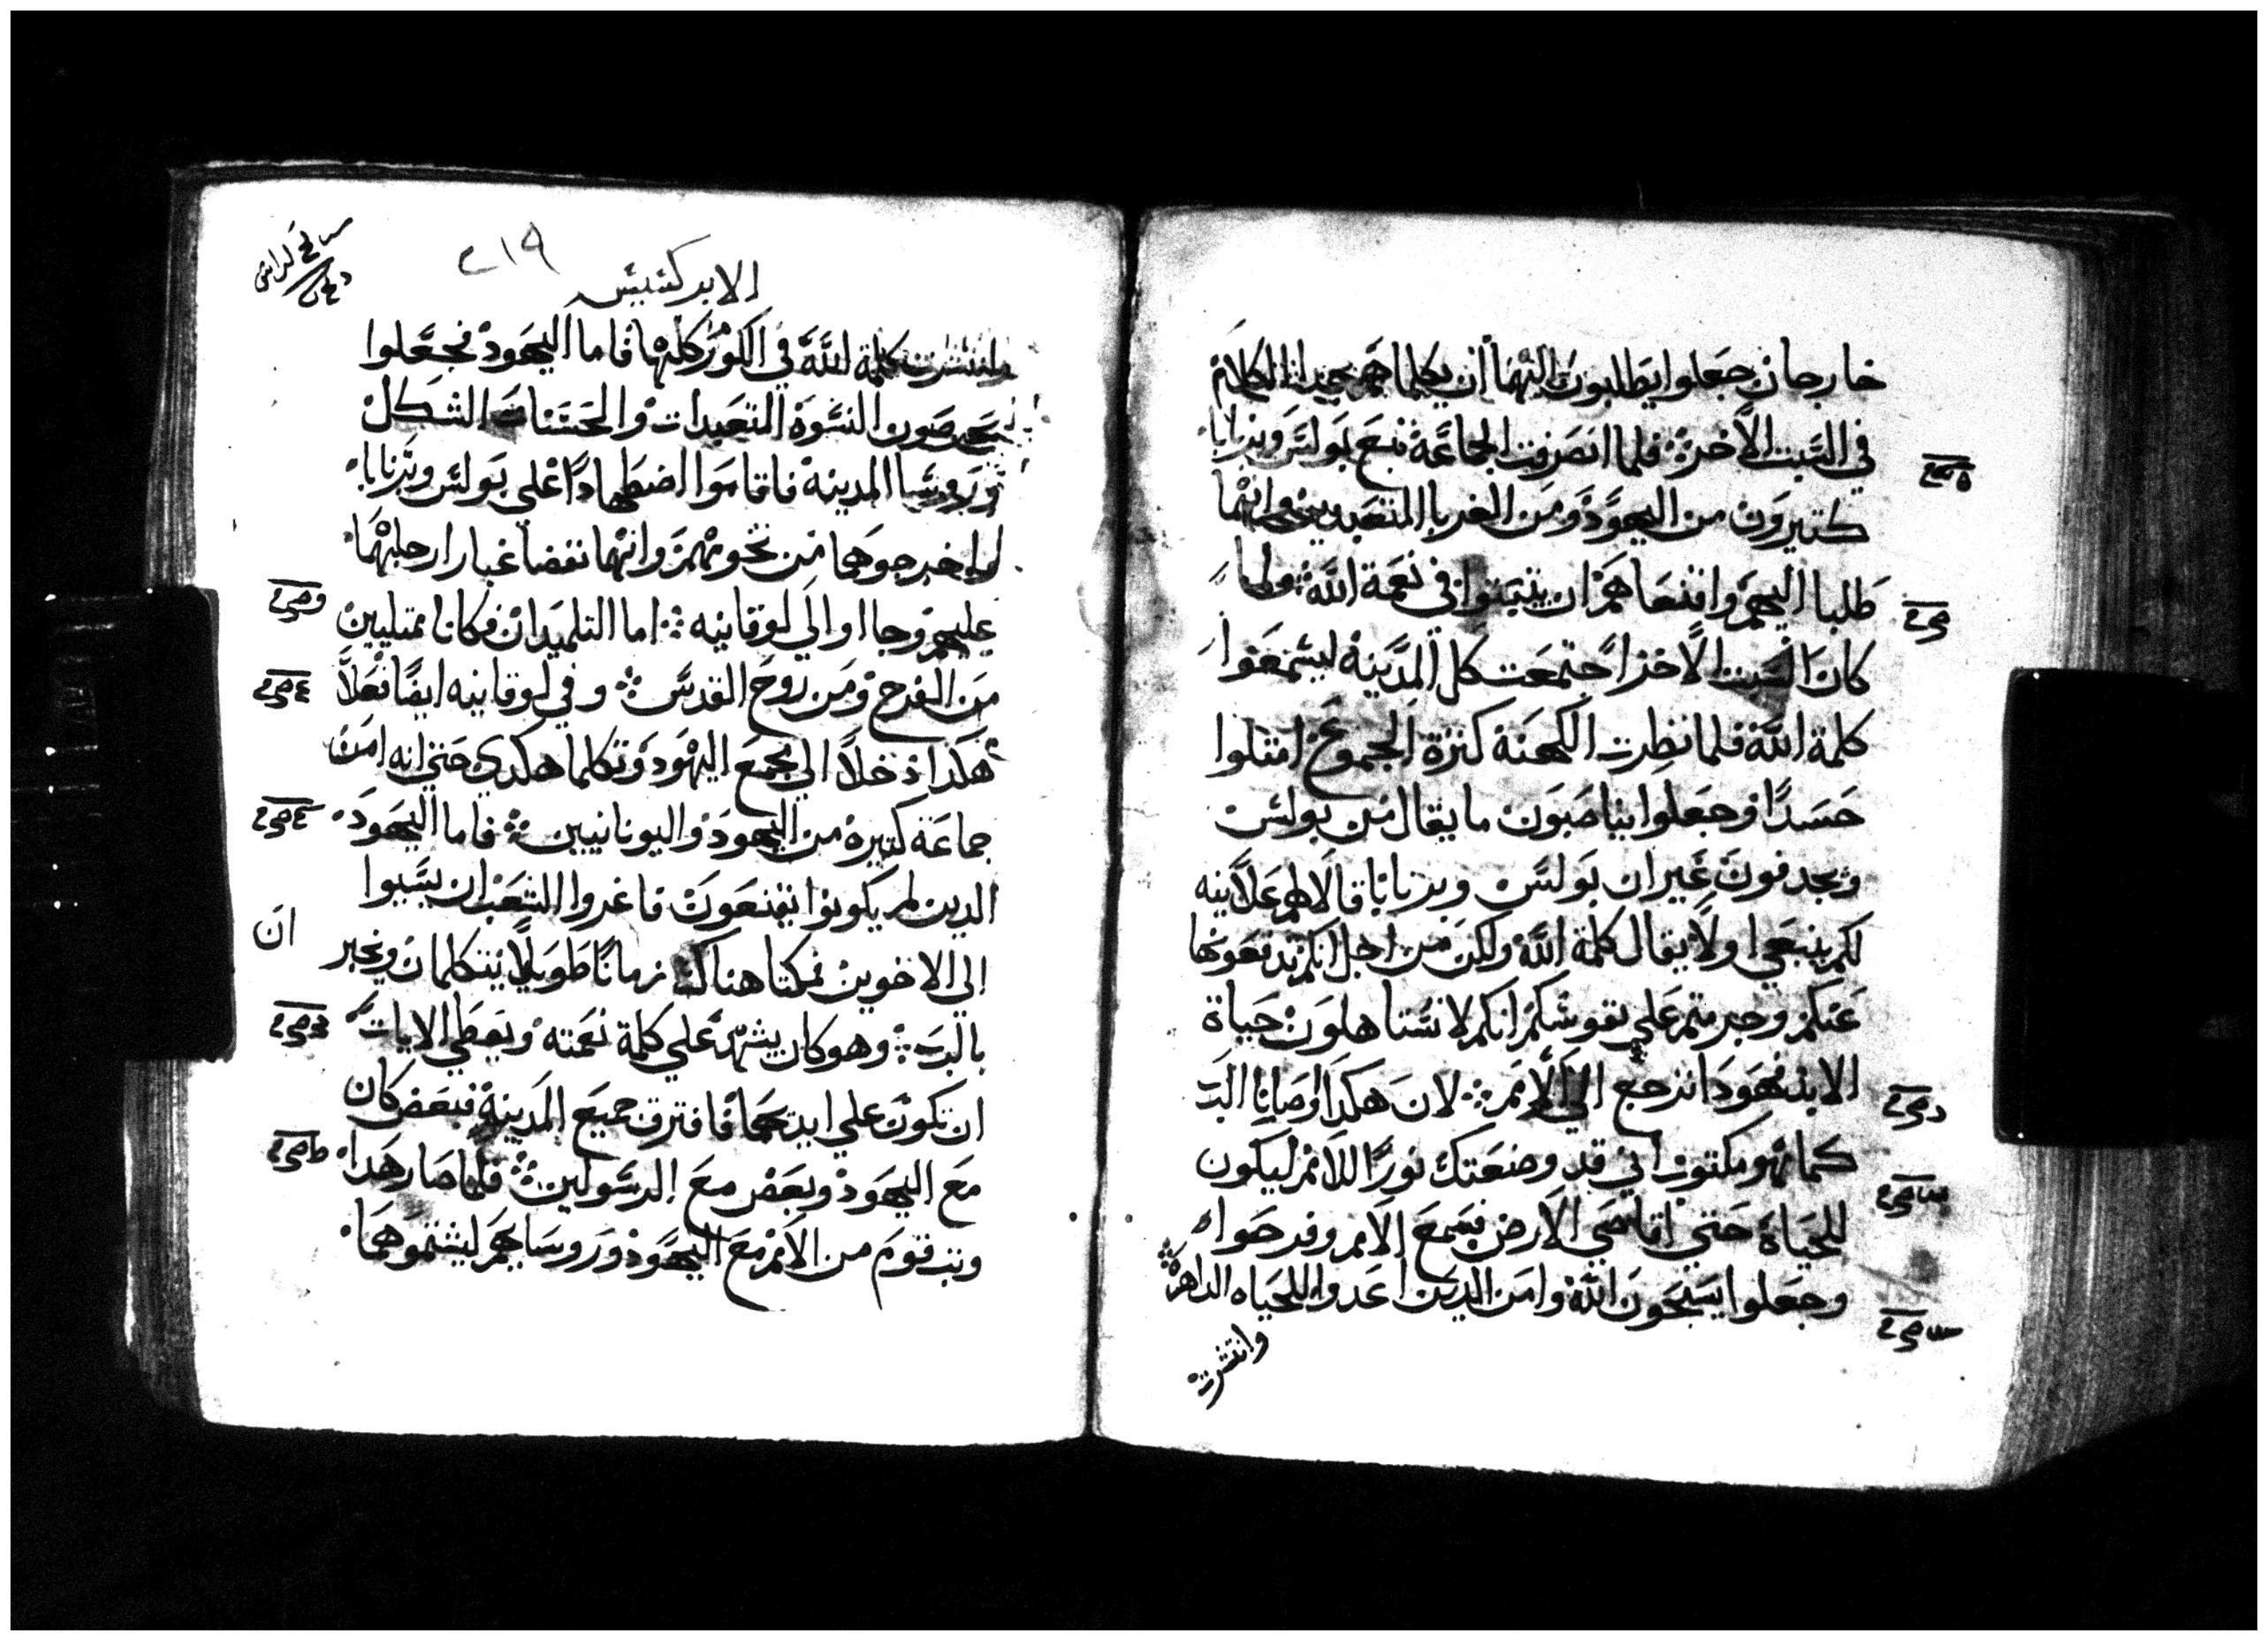 خارجان جعلوا يطلبون اليهما ان يكلماهم بهدا الكلام
في السبت الاخر فلما انصرفت الجماعة تبع بولس وبرنابا
كتيرون من اليهود ومن الغربا المتعبدين وانهما
طلبا اليهم واقنعاهم ان يتبتوا في نعمة الله ولما
كان السبت الاخر اجتمعت كل المدينة ليسمعوا
كلمة الله فلما نظرت الكهنة كترة الجموع امتلوا
حسدا وجعلوا يناصبون ما يقال من بولس
ويجدفون غير ان بولس وبرنابا قالا لهم علانيه
لكم ينبغي اولا يقال كلمة الله ولكن من اجل انكم تدفعونها
عنكم وجبرمتم علي نفوسكم انكم لا تستاهلون حياة
الابد فهودا نرجع الي الامم لان هكدا اوصانا الب
كما هو مكتوب اني قد وضعتك نورا للامم ليكون
للحياة حتي اقاصي الارض فسمع الامم وفرحوا
وجعلوا يسبحون الله وامن الدين اعدوا للحياه الداهرة
وانتشرت
الابركسيس
٢١٩
وانتشرت كلمة الله في الكور كلها فاما اليهود فجعلوا
يحرصون النسوة المتعبدات والحسنات الشكل
وروسا المدينه فاقاموا اضطهادا على بولس وبرنابا
واخرجوهما من تخومهم وانهما نفضا غبار ارجلهما
عليهم وجااوا الي لوقانيه اما التلميدان فكانا ممتليين
من الفرح ومن روح القدس وفي لوقانيه ايضا فعلا
هكذا دخلا الي مجمع اليهود وتكلما هكدي حتي انه امن
جماعة كتيره من اليهود واليونانيين فاما اليهود
الدين لم يكونوا يقنعون فاغروا الشعب ان يسبوا
الي الاخوين فمكتا هناك زمانا طويلا يتكلمان وتجبر
ان
بالرب وهو كان يشهد علي كلمة نعمته ويعطي الايات
ان تكون علي ايديهما فافترق جميع المدينة فبعض كان
مع اليهود وبعض مع الرسولين فلما صار هدا
وتب قوم من الامم مع اليهود وروسايهم ليشتموهما